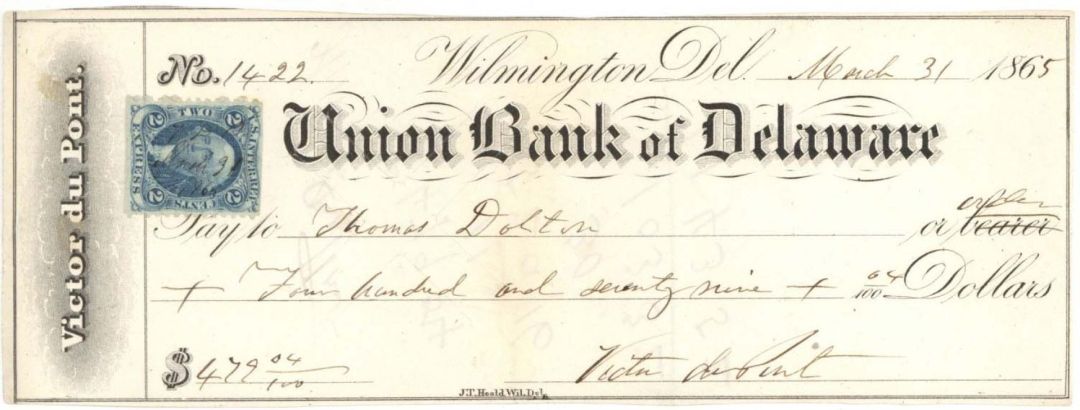 Victor du Pont.
No. 1422. Wilmington Del. March 31 1865
Union Bank of Delaware
U.S. INTER. REV.
TWO
EXPRESS
2 2
2 2
CENTS
Pay to Thomas Dolton or bearer order
+ Four hundred and seventy nine + 04/100 Dollars
$ 479 04/100 Victor du Pont
J.T. Heald, Wil. Del.